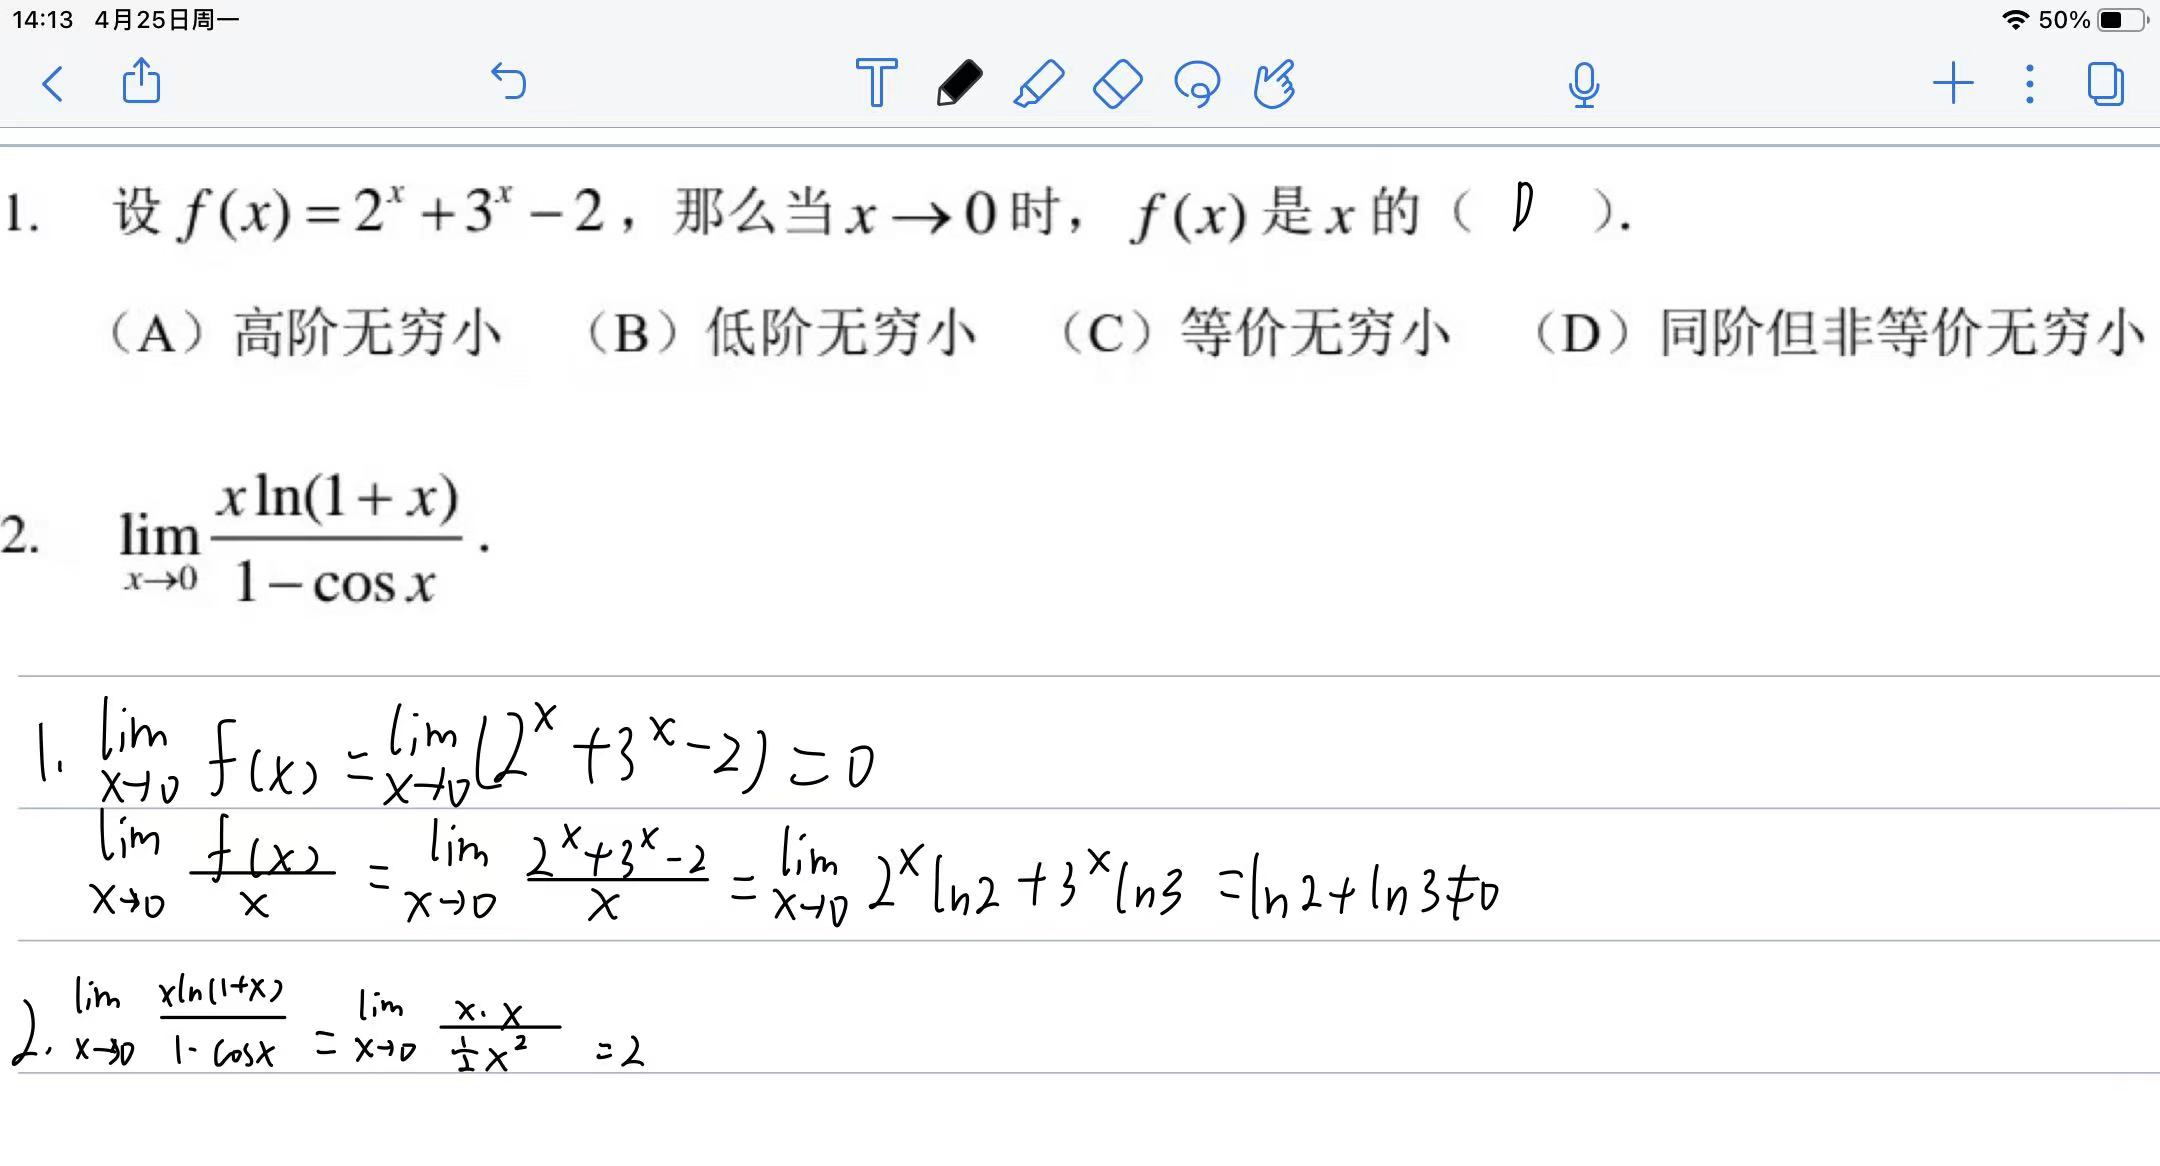 14:13 4月25日周一 50%
1. 设 f(x) = 2^x + 3^x − 2，那么当 x → 0 时，f(x) 是 x 的（ D ）.
（A）高阶无穷小 （B）低阶无穷小 （C）等价无穷小 （D）同阶但非等价无穷小
2. lim_{x→0} \frac{x ln(1+x)}{1−cos x} .
1. lim_{x→0} f(x) = lim_{x→0} (2^x + 3^x − 2) = 0
lim_{x→0} \frac{f(x)}{x} = lim_{x→0} \frac{2^x + 3^x − 2}{x} = lim_{x→0} 2^x ln2 + 3^x ln3 = ln2 + ln3 ≠ 0
2. lim_{x→0} \frac{xln(1+x)}{1-cosx} = lim_{x→0} \frac{x·x}{\frac{1}{2}x^2} = 2